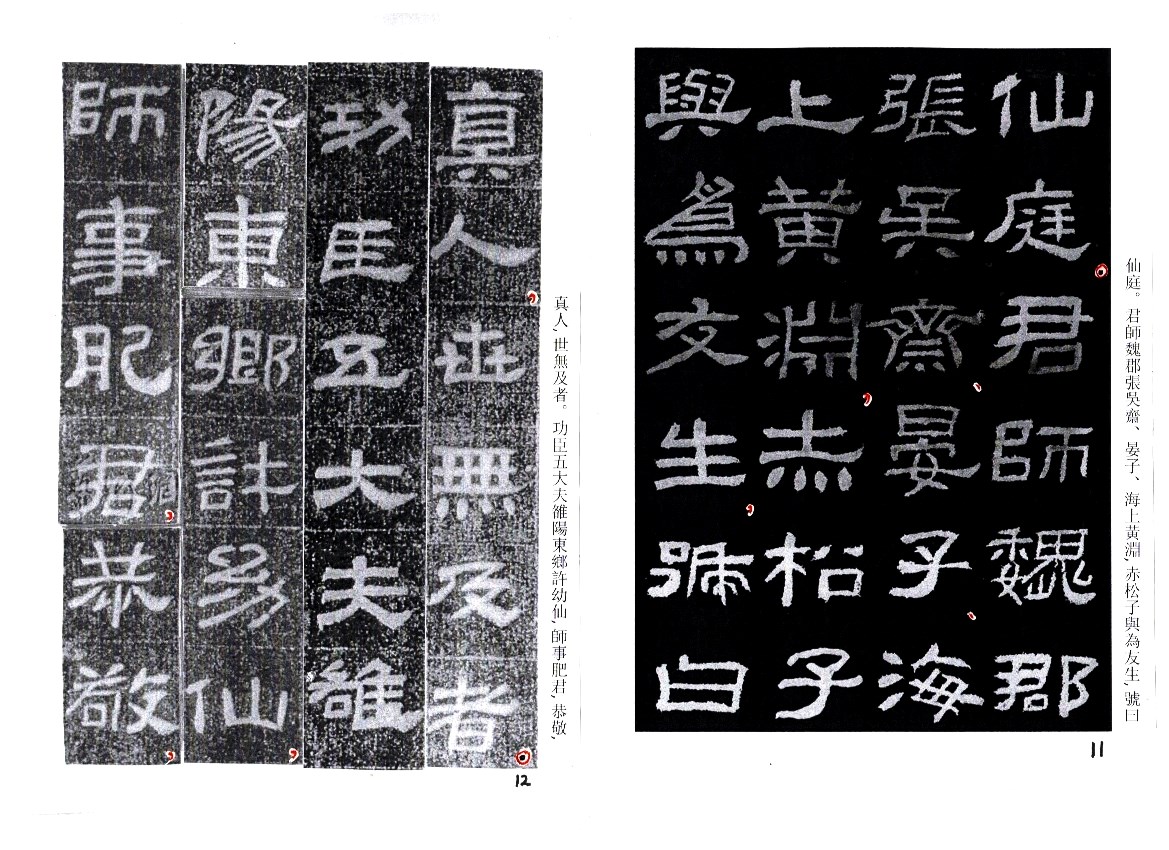 仙庭。君師魏郡張吳齋、晏子、海上黃淵,赤松子與為友生,號曰
仙庭君師魏郡
張吳齋晏子海
上黃淵赤松子
與為友生號曰
11
真人,世無及者。功臣五大夫雒陽東鄉許幼仙,師事肥君,恭敬,
真人世無及者
功臣五大夫雒
陽東鄉許幼仙
師事肥君恭敬
12